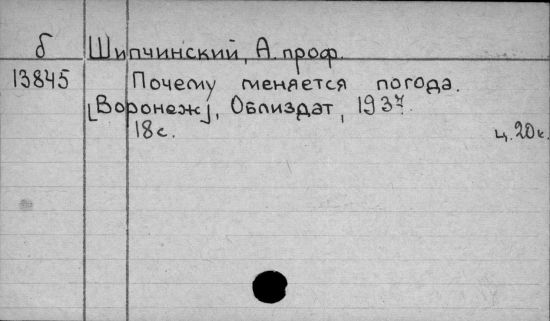 б Шипчинский, А. проф.
13845 Почему меняется погода.
[Воронеж], Облиздат, 1937.
18 с. ц. 20 к.